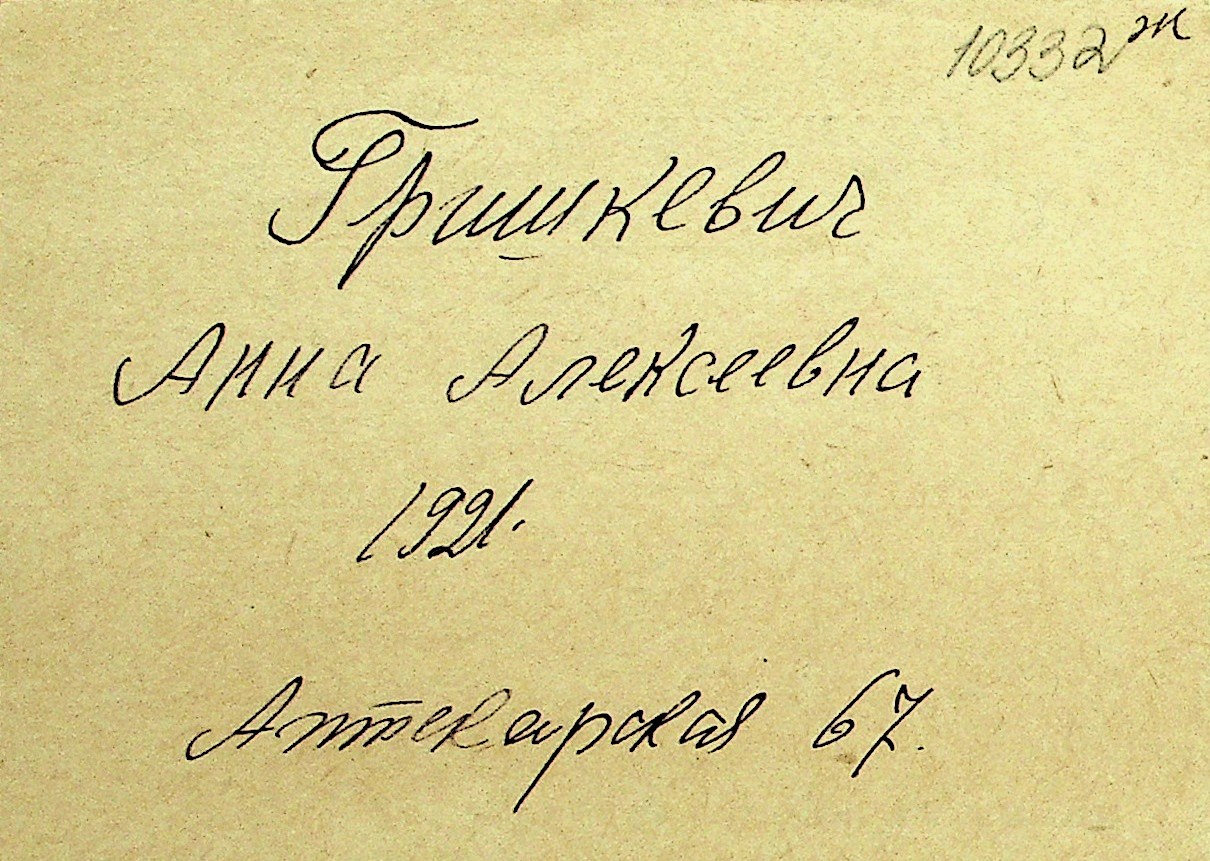 10332 ж
Гришкевич
Анна Алексеевна
1921.
Аптекарская 67.